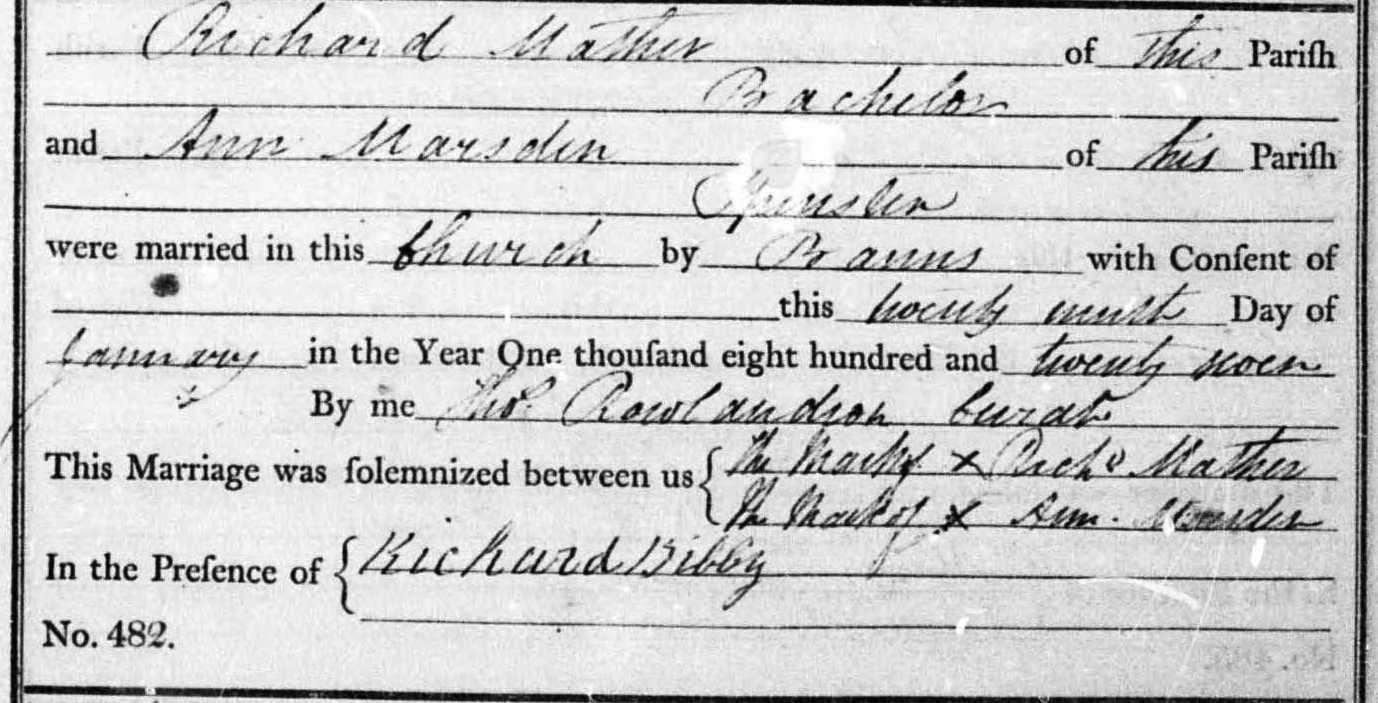 Richard Mather of this Pariſh
Bachelor
and Ann Marsden of this Pariſh
Spinster
were married in this Church by Banns with Conſent of
this twenty ninth Day of
January in the Year One thouſand eight hundred and twenty seven
By me Thoˢ Rowlandson Curate
This Marriage was ſolemnized between us { The Mark of x Richᵈ Mather
The Mark of x Ann Marsden
In the Preſence of { Richard Bibby
No. 482.